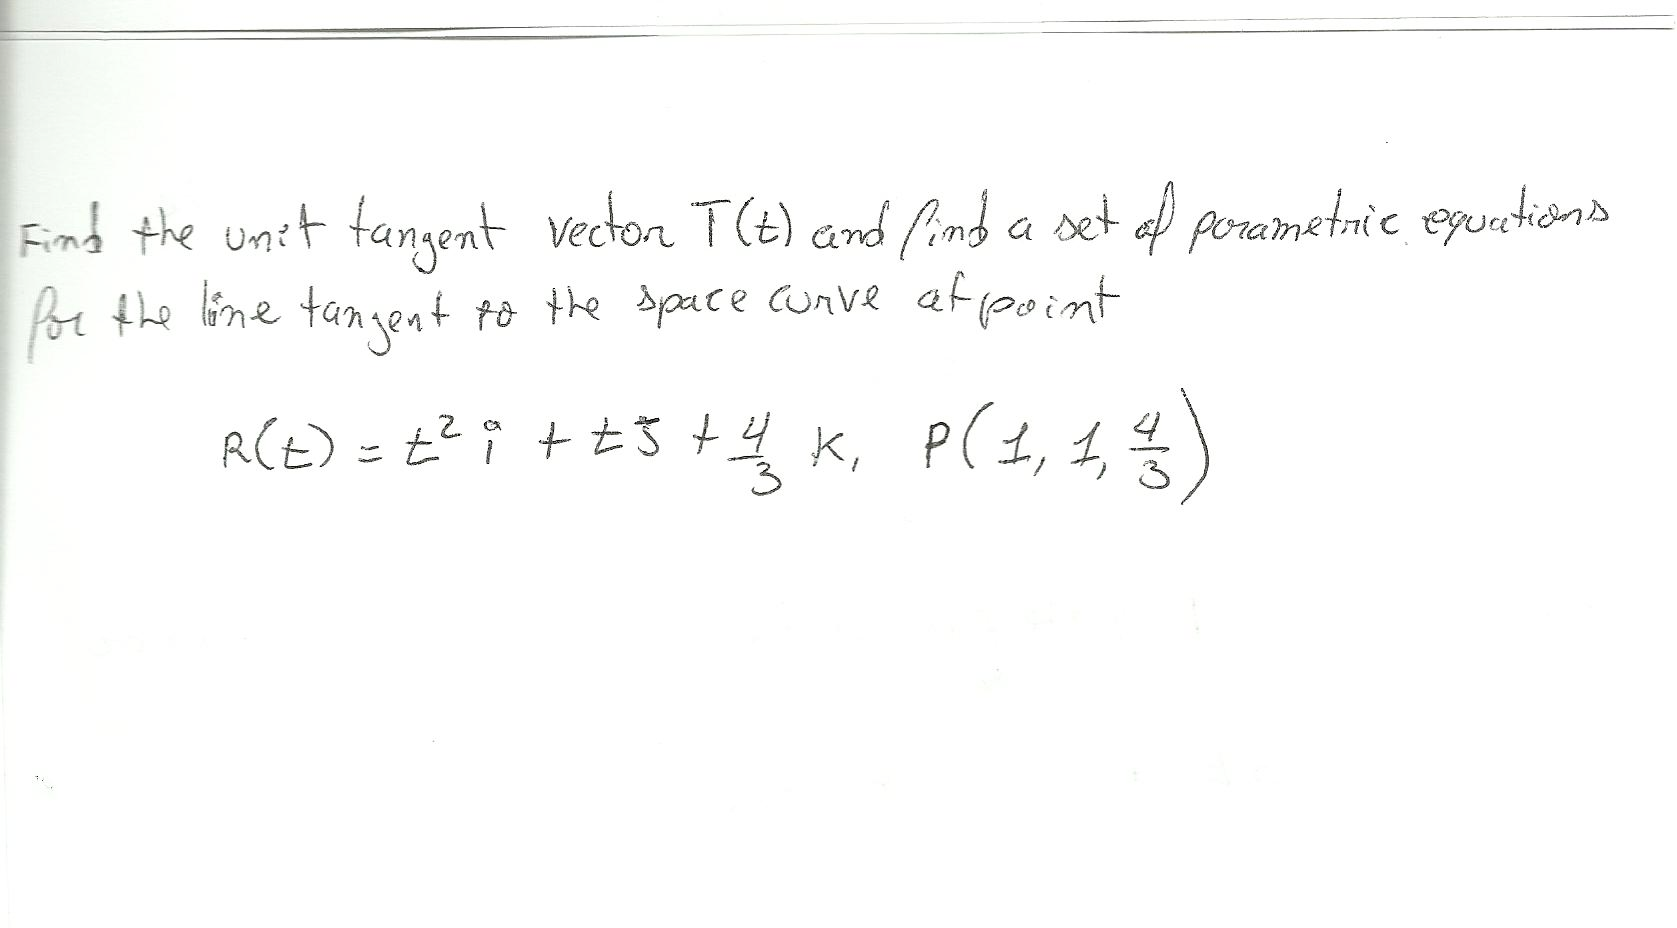 Find the unit tangent vector T(t) and find a set of parametric equations
for the line tangent to the space curve at point
R(t) = t² i + t j + 4/3 k, P(1, 1, 4/3)